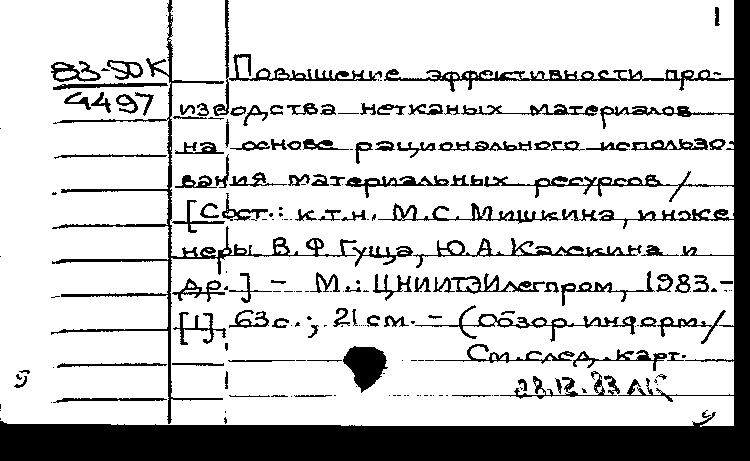 1
83-50К Повышение эффективности про-
4497 изводства нетканых материалов
на основе рационального использо-
вания материальных ресурсов /
[Сост.: к.т.н. М.С. Мишкина, инже
неры В.Ф. Гуща, Ю.А. Калекина и
др.] - М.: ЦНИИТЭИлегпром, 1983.-
[1], 63с.; 21см. - (Обзор. информ./
См. след. карт.
28.12.83 ЛК